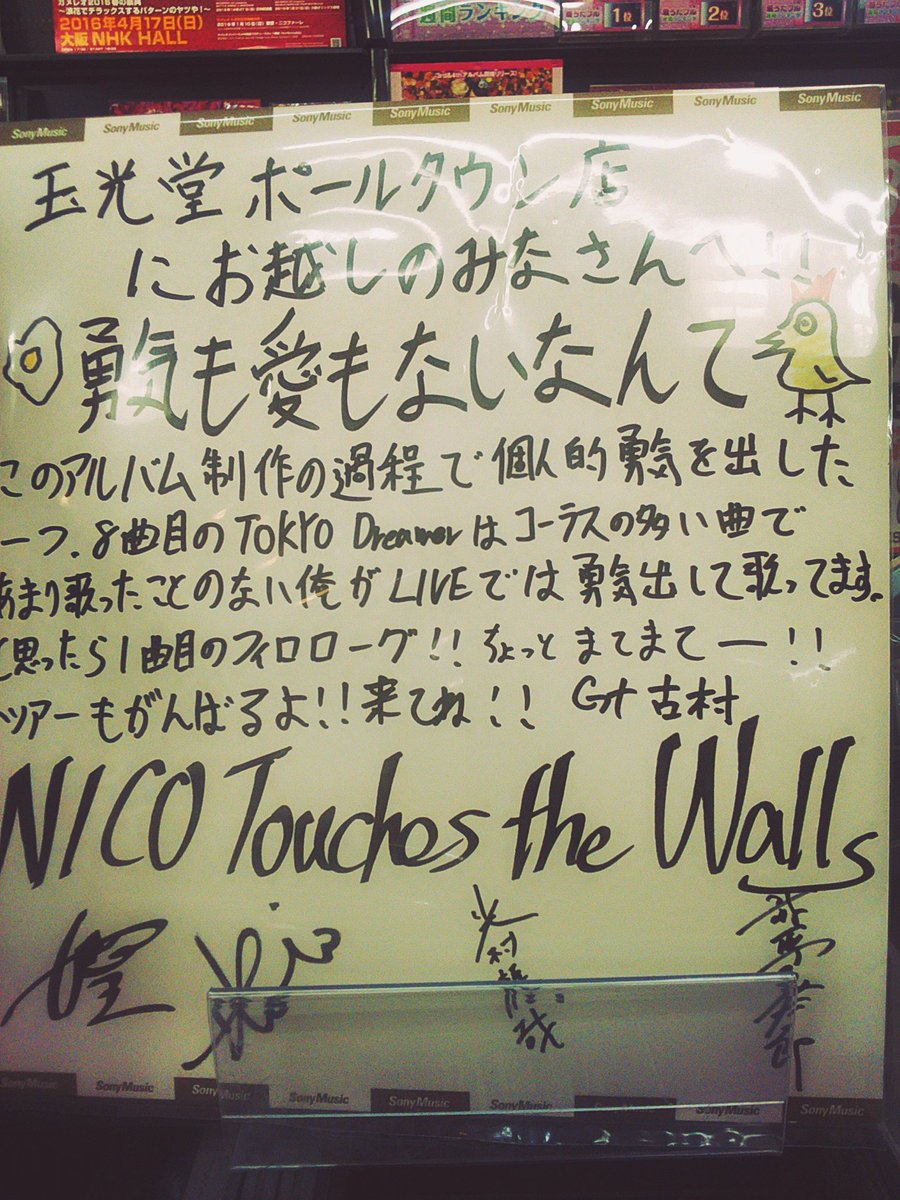 2016年4月17日(日)
大阪 NHK HALL
1位
2位
3位
SonyMusic SonyMusic SonyMusic SonyMusic SonyMusic SonyMusic SonyMusic SonyMusic SonyMusic
玉光堂 ポールタウン店
にお越しのみなさんへ!!
勇気も愛もないなんて
このアルバム制作の過程で個人的勇気を出した
一つ.8曲目のTOKYO Dreamerはコーラスの多い曲で
あまり歌ったことのない俺がLIVEでは勇気出して歌ってます。
と思ったら1曲目のフィロローグ!!ちょっとまてまてー!!
ツアーもがんばるよ!!来てね!! Gt古村
NICO Touches the Walls
光村龍哉
SonyMusic SonyMusic SonyMusic SonyMusic SonyMusic SonyMusic SonyMusic SonyMusic